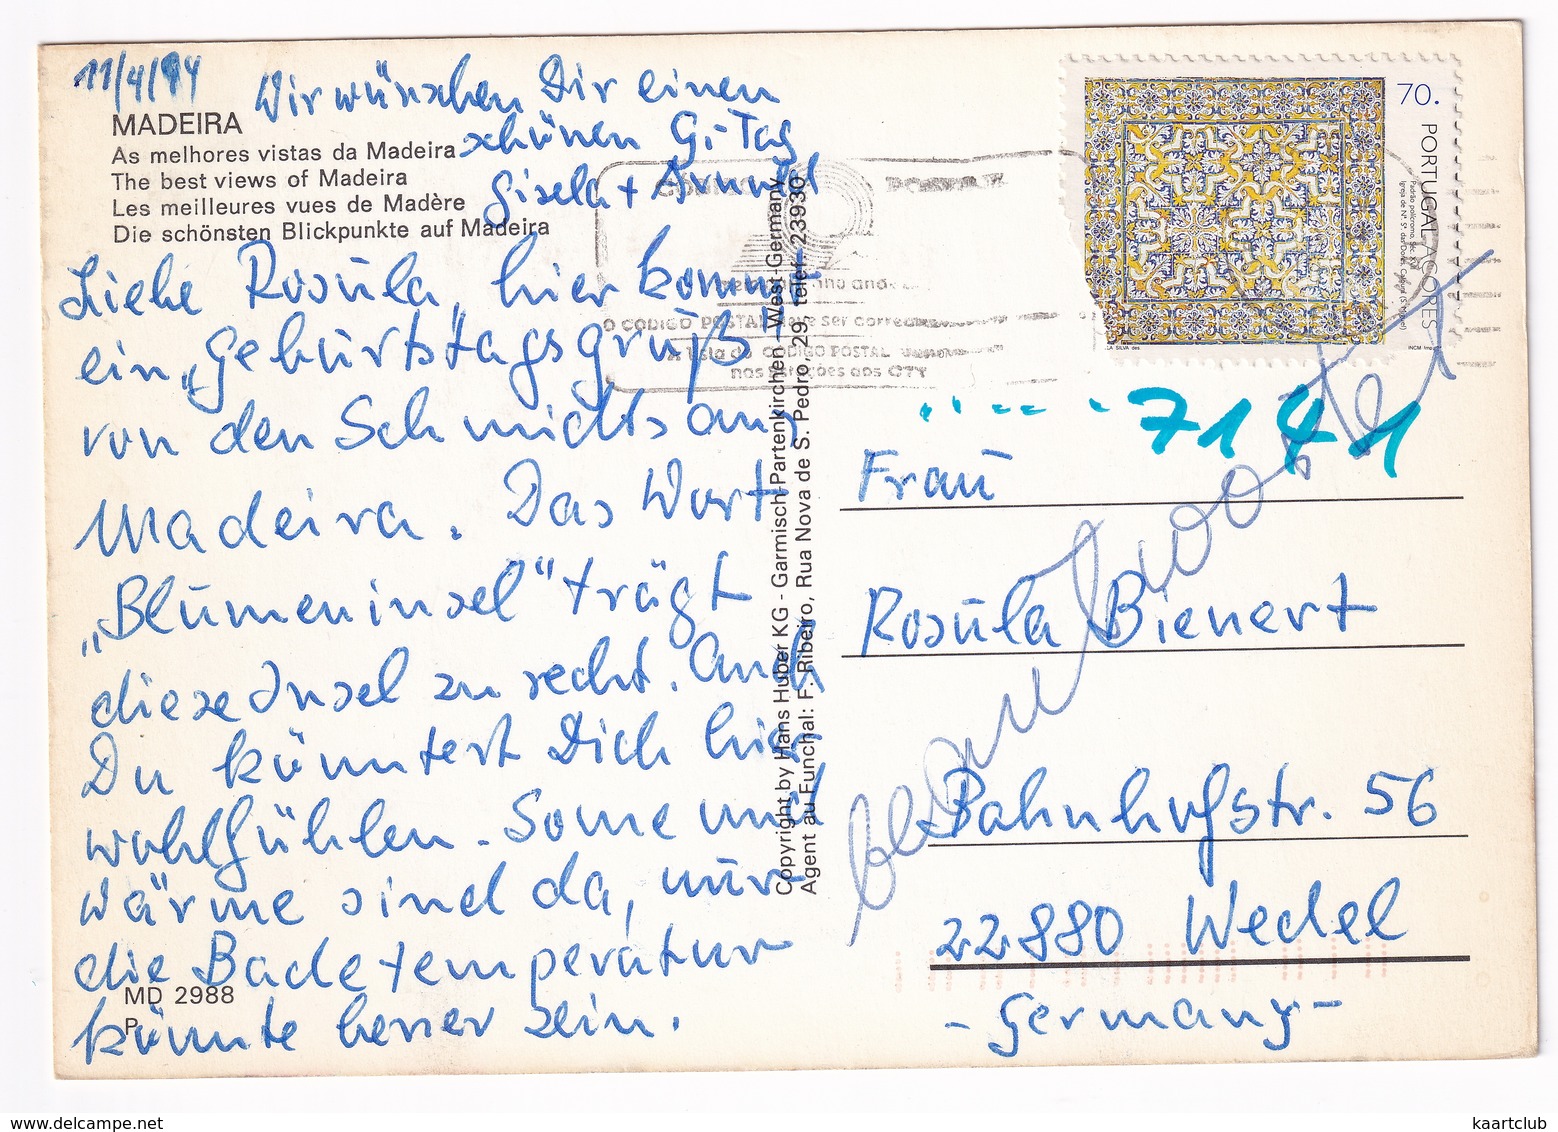 11/4/94
Wir wünschen Dir einen
schönen G.-Tag
Gisela +
MADEIRA
As melhores vistas da Madeira
The best views of Madeira
Les meilleures vues de Madère
Die schönsten Blickpunkte auf Madeira
Liebe Rosula, hier kommt
ein „Geburtstagsgruß"
von den Schmidts aus
Madeira. Das Wort
„Blumeninsel" trägt
diese Insel zu recht. Auch
Du könntest Dich hier
wohlfühlen. Sonne und
Wärme sind da, nur
die Badetemperatur
könnte besser sein.
MD 2988
P
Copyright by Hans Huber KG - Garmisch-Partenkirchen - West-Germany
Agent au Funchal: F. Ribeiro, Rua Nova de S. Pedro, 29, Telef. 23930
CÓDIGO POSTAL
O CODIGO POSTAL deve ser
A lista do CODIGO POSTAL
nas estações dos CTT
70.
PORTUGAL AÇORES
Padrão policromo, séc. XVII
LA SILVA des.
INCM
7141
beantwortet
Frau
Rosula Bienert
Bahnhofstr. 56
22880 Wedel
- Germany -
kaartclub